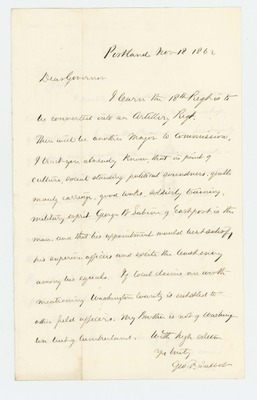 Portland Nov 18 1862
Dear Governor
I learn the 18th Regt is to
be converted into an Artillery Regt.
There will be another Major to Commission,
I trust you already know, that in point of
culture, social standing political soundness, gentle
manly carriage, good looks soldierly training,
military esprit George W Sabine of Eastport is the
man and that his appointment would best satisfy
his superior officers and excite the least envy
among his equals. If local claims are worth
mentioning Washington County is entitled to
other field officers. My Brother is not of Washing
ton but of Cumberland. With high esteem
Yr truly
Geo F